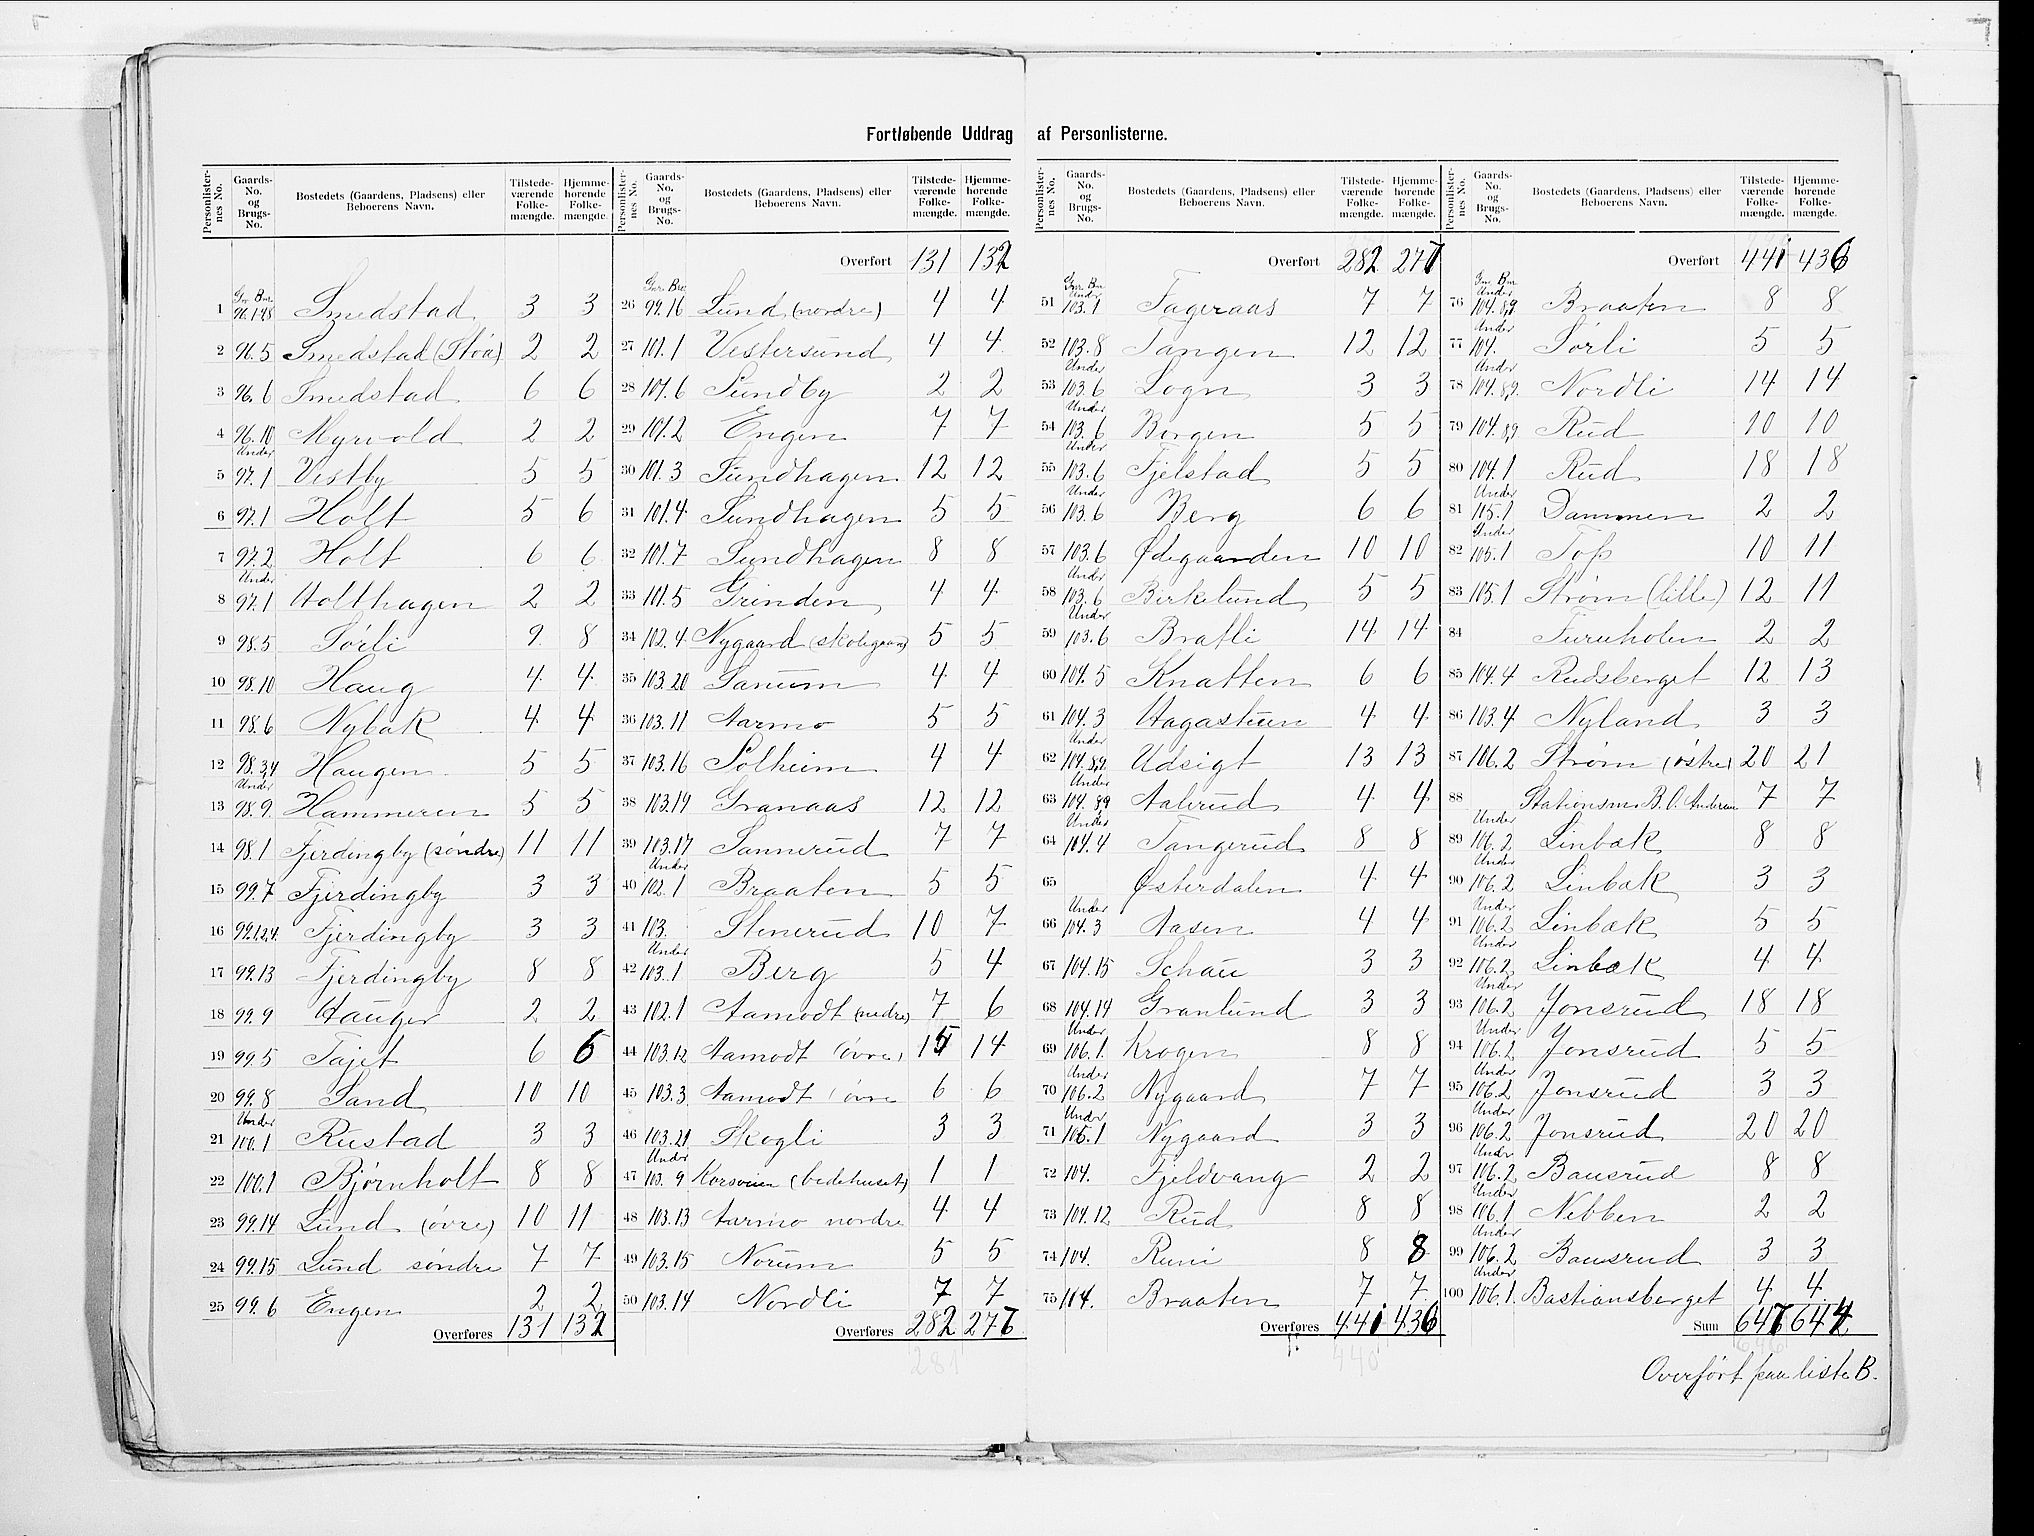 Fortløbende Uddrag af Personlisterne.
Personlister-nes No. Gaards-No. og Brugs-No. Bostedets (Gaardens, Pladsens) eller Beboerens Navn. Tilstede-værende Folke-mængde. Hjemme-hørende Folke-mængde.
Gnr Bnr
1 96.1 Smedstad 3 3
2 96.5 Smedstad 2 2
3 96.6 Smedstad 6 6
4 96.10 Myrvold 2 2
5 Under 97.1 Vestby 5 5
6 97.1 Holt 5 6
7 97.2 Holt 6 6
8 Under 97.1 Holthagen 2 2
9 98.5 Sørli 9 8
10 98.10 Haug 4 4
11 98.6 Nybak 4 4
12 98.3,4 Haugen 5 5
13 Under 98.9 Hammeren 5 5
14 98.1 Fjerdingby (søndre) 11 11
15 99.7 Fjerdingby 3 3
16 99.1,2,4 Fjerdingby 3 3
17 99.13 Fjerdingby 8 8
18 99.9 Hauger 2 2
19 99.5 Tajet 6 6
20 99.8 Sand 10 10
21 Under 100.1 Rustad 3 3
22 100.1 Bjørnholt 8 8
23 99.14 Lund (øvre) 10 11
24 99.15 Lund søndre 7 7
25 99.6 Engen 2 2
Overføres 131 132
Personlister-nes No. Gaards-No. og Brugs-No. Bostedets (Gaardens, Pladsens) eller Beboerens Navn. Tilstede-værende Folke-mængde. Hjemme-hørende Folke-mængde.
Overført 131 132
Gnr. Bnr
26 99.16 Lund (nordre) 4 4
27 101.1 Vestersund 4 4
28 101.6 Sundby 2 2
29 101.2 Engen 7 7
30 101.3 Sundhagen 12 12
31 101.4 Sundhagen 5 5
32 101.7 Sundhagen 8 8
33 101.5 Grinden 4 4
34 102.4 Nygaard (skolegaard) 5 5
35 103.20 Sanum 4 4
36 103.11 Aarmo 5 5
37 103.16 Solheim 4 4
38 103.19 Granaas 12 12
39 103.17 Sannerud 7 7
40 Under 102.1 Braaten 5 5
41 103. Stenerud 10 7
42 Under 103.1 Berg 5 4
43 102.1 Aamodt (nedre) 7 6
44 103.12 Aamodt (øvre) 15 14
45 103.3 Aamodt (øvre 6 6
46 103.21 Skogli 3 3
47 Under 103.9 Korsveien (bedehuset) 1 1
48 103.13 Aarmo nordre 4 4
49 103.15 Norum 5 5
50 103.14 Nordli 7 7
Overføres 282 277
281
Personlister-nes No. Gaards-No. og Brugs-No. Bostedets (Gaardens, Pladsens) eller Beboerens Navn. Tilstede-værende Folke-mængde. Hjemme-hørende Folke-mængde.
Overført 282 277
Gnr. Bnr
51 Under 103.1 Fageraas 7 7
52 103.8 Tangen 12 12
53 Under 103.6 Sogn 3 3
54 Under 103.6 Borgen 5 5
55 Under 103.6 Fjelstad 5 5
56 Under 103.6 Berg 6 6
57 103.6 Ødegaarden 10 10
58 Under 103.6 Birkelund 5 5
59 Under 103.6 Bratli 14 14
60 104.5 Knatten 6 6
61 104.3 Hagastuen 4 4
62 Under 104.8,9 Udsigt 13 13
63 Under 104.8,9 Aalerud 4 4
64 Under 104.4 Tangerud 8 8
65 Østerdalen 4 4
66 Under 104.3 Aasen 4 4
67 104.15 Schau 3 3
68 104.14 Granlund 3 3
69 Under 106.1. Krogen 8 8
70 Under 106.2 Nygaard 7 7
71 Under 106.1 Nygaard 3 3
72 104. Fjeldvang 2 2
73 104.12 Rud 8 8
74 104. Runi 8 8
75 104. Braaten 7 7
Overføres 441 436
440
Personlister-nes No. Gaards-No. og Brugs-No. Bostedets (Gaardens, Pladsens) eller Beboerens Navn. Tilstede-værende Folke-mængde. Hjemme-hørende Folke-mængde.
Overført 441 436
Gnr. Bnr
76 Under 104.8,9 Braaten 8 8
77 Under 104. Sørli 5 5
78 Under 104.8,9. Nordli 14 14
79 104.8,9 Rud 10 10
80 104.1 Rud 18 18
81 Under 105.1 Dammen 2 2
82 Under 105.1 Top 10 11
83 105.1 Strøm (lille) 12 11
84 Furuholen 2 2
85 104.4 Rudsberget 12 13
86 103.4 Nyland 3 3
87 106.2 Strøm (østre) 20 21
88 Stationsm. B. O. Andersen 7 7
89 Under 106.2 Linbæk 8 8
90 Under 106.2 Linbæk 3 3
91 Under 106.2 Linbæk 5 5
92 Under 106.2 Linbæk 4 4
93 Under 106.2 Jonsrud 18 18
94 Under 106.2 Jonsrud 5 5
95 Under 106.2 Jonsrud 3 3
96 Under 106.2 Jonsrud 20 20
97 Under 106.2 Bausrud 8 8
98 Under 106.1 Nebben 2 2
99 Under 106.2 Bausrud 3 3
100 Under 106.1. Bastiansberget 4 4
Sum 647 644
Overført paa liste B.